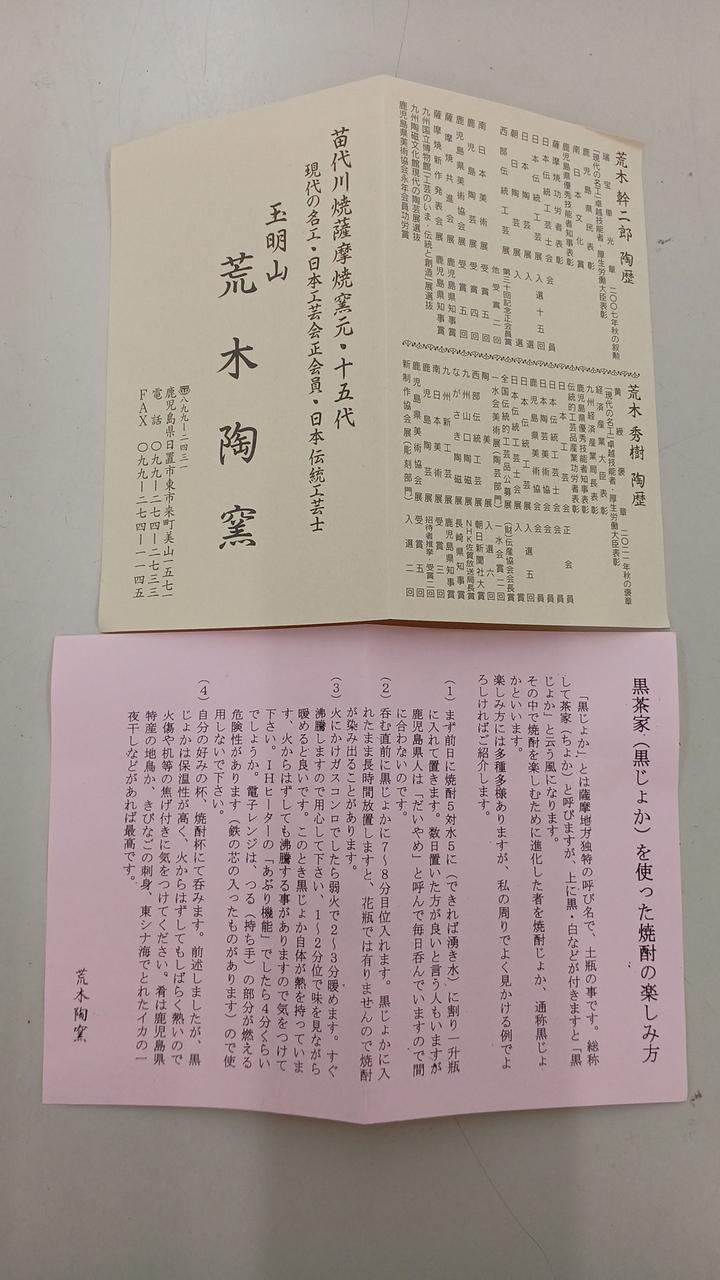 荒木 幹二郎 陶歴
瑞宝単光章 二〇〇七年秋の叙勲
「現代の名工」卓越技能者・厚生労働大臣表彰
鹿児島県民表彰
南日本文化賞
鹿児島県優秀技能者知事表彰
薩摩焼功労者表彰
日本伝統工芸士会 会員
日本伝統工芸展 入選 十五回
日本陶芸展 入選
朝日陶芸展 入選
西部伝統工芸展 第三十回記念正会員賞
他受賞二回
南日本美術展 受賞 五回
鹿児島陶芸展 受賞 四回
鹿児島県美術協会展 受賞 五回
薩摩焼共進会展 鹿児島県知事賞
薩摩焼新作発表会展 鹿児島県知事賞
九州国立博物館「工芸のいま・伝統と創造」展選抜
九州陶磁文化館現代の陶芸展選抜
鹿児島県美術協会永年会員功労賞
荒木 秀樹 陶歴
黄綬褒章 二〇二一年秋の褒章
「現代の名工」卓越技能者・厚生労働大臣表彰
経済産業大臣表彰
九州経済産業局長表彰
鹿児島県優秀技能者知事表彰
伝統的工芸品産業功労者表彰
日本工芸会 正会員
日本伝統工芸士会 会員
日本陶芸美術協会 会員
鹿児島県美術協会 会員
日本伝統工芸展 入選 五回
日本伝統工芸士会展 入賞
全国伝統的工芸品公募展 (財)伝産協会会長賞
一水会美術展(陶芸部門) 一水会賞 二回
陶美展 入選 六回
西部伝統工芸展 朝日新聞社大賞
九州山口陶磁展 NHK佐賀放送局長賞
ながさき陶磁展 長崎県知事賞
九州新工芸展 鹿児島県知事賞
南日本美術展 受賞 三回
鹿児島陶芸展 招待者推挙 受賞二回
鹿児島県美術協会展 受賞 五回
新制作協会展(彫刻部門) 入選 二回
苗代川焼薩摩焼窯元・十五代
現代の名工・日本工芸会正会員・日本伝統工芸士
玉明山
荒木陶窯
〒八九九―二四三一
鹿児島県日置市東市来町美山一五七一
電話 〇九九―二七四―二七三三
FAX 〇九九―二七四―一一四五
黒茶家(黒じょか)を使った焼酎の楽しみ方
「黒じょか」とは薩摩地方独特の呼び名で、土瓶の事です。総称
して茶家(ちょか)と呼びますが、上に黒・白などが付きますと「黒
じょか」と云う風になります。
その中で焼酎を楽しむために進化した者を焼酎じょか、通称黒じょ
かといいます。
楽しみ方には多種多様ありますが、私の周りでよく見かける例でよ
ろしければご紹介します。
(1)まず前日に焼酎5対水5に(できれば湧き水)に割り一升瓶
に入れて置きます。数日置いた方が良いと言う人もいますが
鹿児島県人は「だいやめ」と呼んで毎日呑んでいますので間
に合わないのです。
(2)呑む直前に黒じょかに7~8分目位入れます。黒じょかに入
れたまま長時間放置しますと、花瓶では有りませんので焼酎
が染み出ることがあります。
(3)火にかけガスコンロでしたら弱火で2~3分暖めます。すぐ
沸騰しますので用心して下さい、1~2分位で味を見ながら
暖めると良いです。このとき黒じょか自体が熱を持っていま
す、火からはずしても沸騰する事がありますので気をつけて
下さい。IHヒーターの「あぶり機能」でしたら4分くらい
でしょうか。電子レンジは、つる(持ち手)の部分が燃える
危険性があります(鉄の芯の入ったものがあります)ので使
用しないで下さい。
(4)自分の好みの杯、焼酎杯にて呑みます。前述しましたが、黒
じょかは保温性が高く、火からはずしてもしばらく熱いので
火傷や机等の焦げ付きに気をつけてください。肴は鹿児島県
特産の地鳥か、きびなごの刺身、東シナ海でとれたイカの一
夜干しなどがあれば最高です。
荒木陶窯